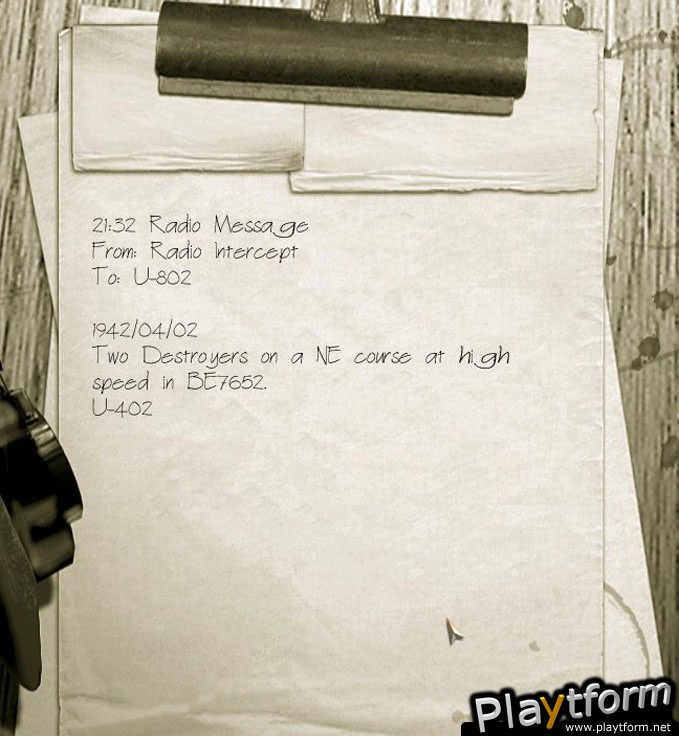 21:32 Radio Message
From: Radio Intercept
To: U-802
1942/04/02
Two Destroyers on a NE course at high
speed in BE7652.
U-402
Playtform
www.playtform.net